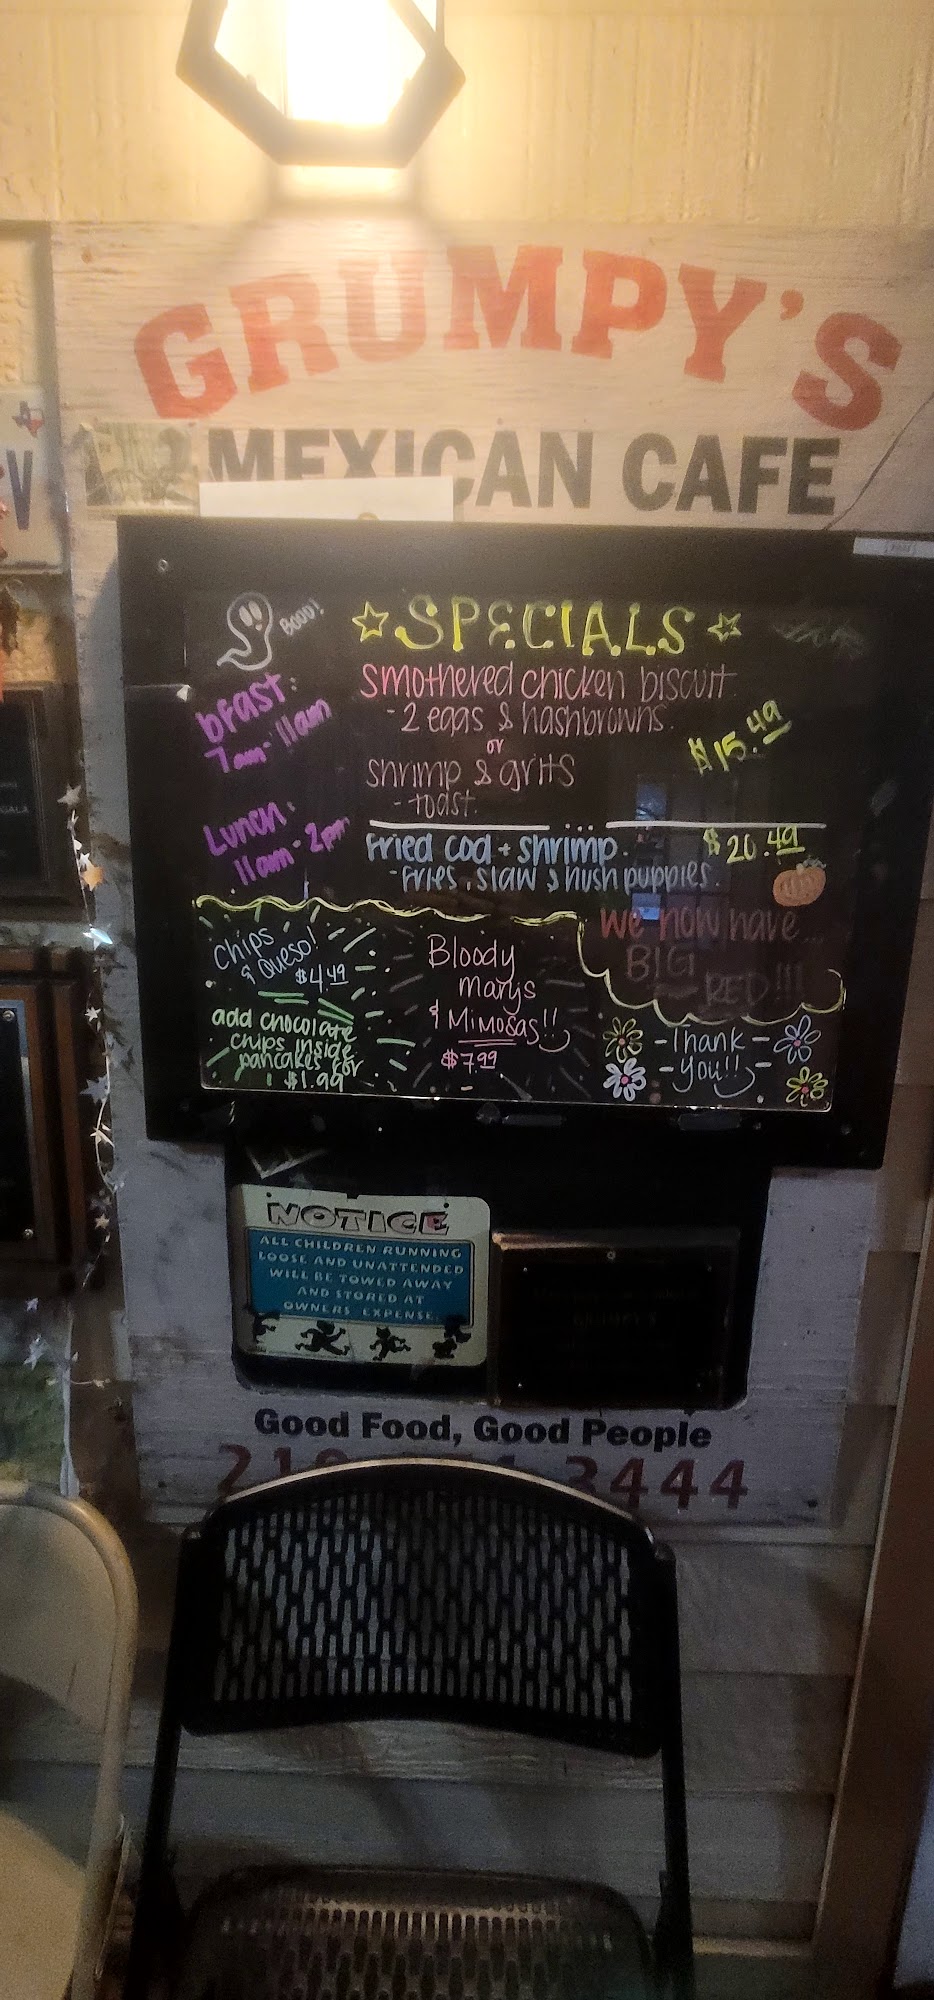 GRUMPY'S
MEXICAN CAFE
V
Booo!
SPECIALS
bfast:
7am-11am
smothered chicken biscuit
- 2 eggs & hashbrowns
or
$15.49
shrimp & grits
- toast
Lunch:
11am-2pm
Fried cod + shrimp
$20.49
- fries, slaw & hushpuppies.
we now have...
BIG
RED!!!
Chips
& Queso!
$4.49
add chocolate
chips inside
pancakes for
$1.99
Bloody
marys
& Mimosas!!
$7.99
- Thank -
- you!! -
NOTICE
ALL CHILDREN RUNNING
LOOSE AND UNATTENDED
WILL BE TOWED AWAY
AND STORED AT
OWNERS' EXPENSE.
GRUMPY'S
Good Food, Good People
210 3444